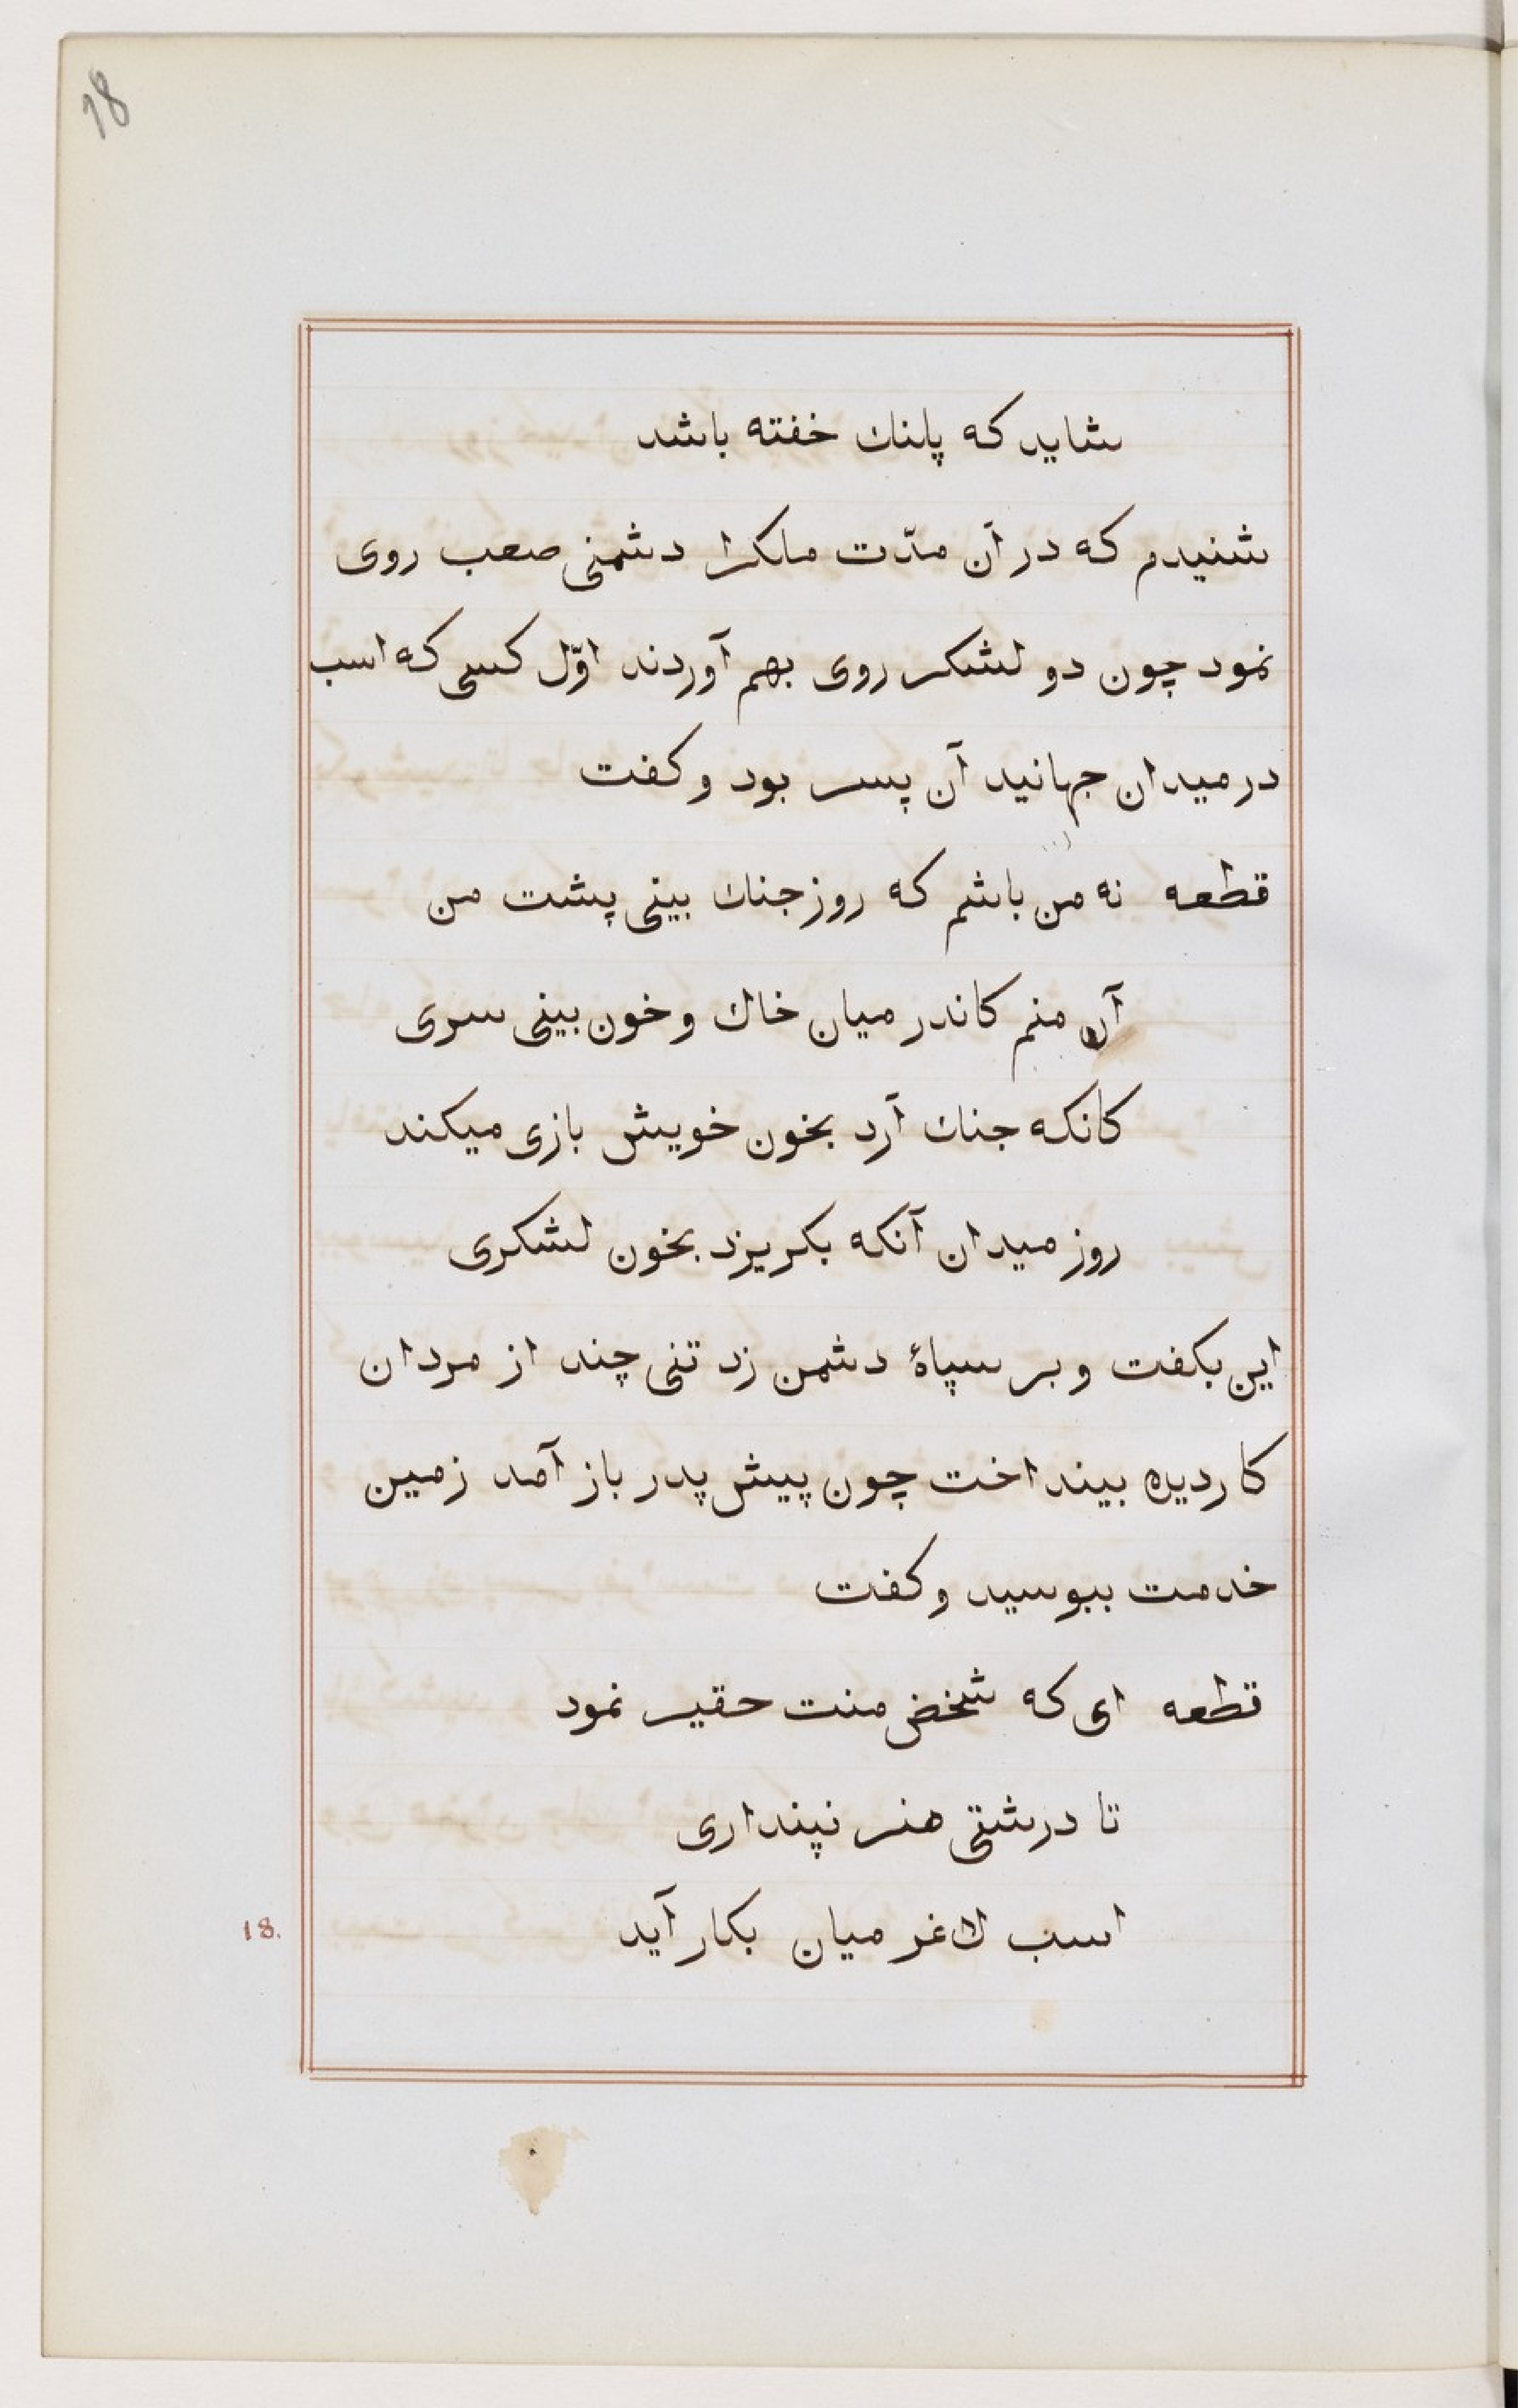 18
شاید که پلنك خفته باشد
شنیدم که در آن مدّت ملکرا دشمنی صعب روی
نمود چون دو لشکر روی بهم آوردند اوّل کسی که اسب
در میدان جهانید آن پسر بود و کفت
قطعه نه من باشم که روز جنك بینی پشت من
آن منم کاندر میان خاك و خون بینی سری
کانکه جنك آرد بخون خویش بازی میکند
روز میدان آنکه بکریزد بخون لشکری
این بکفت و بر سپاهٔ دشمن زد تنی چند از مردان
کاردیده بینداخت چون پیش پدر باز آمد زمین
خدمت ببوسید و کفت
قطعه ای که شخض منت حقیر نمود
تا درشتی هنر نپنداری
اسب لاغر میان بکار آید
18.